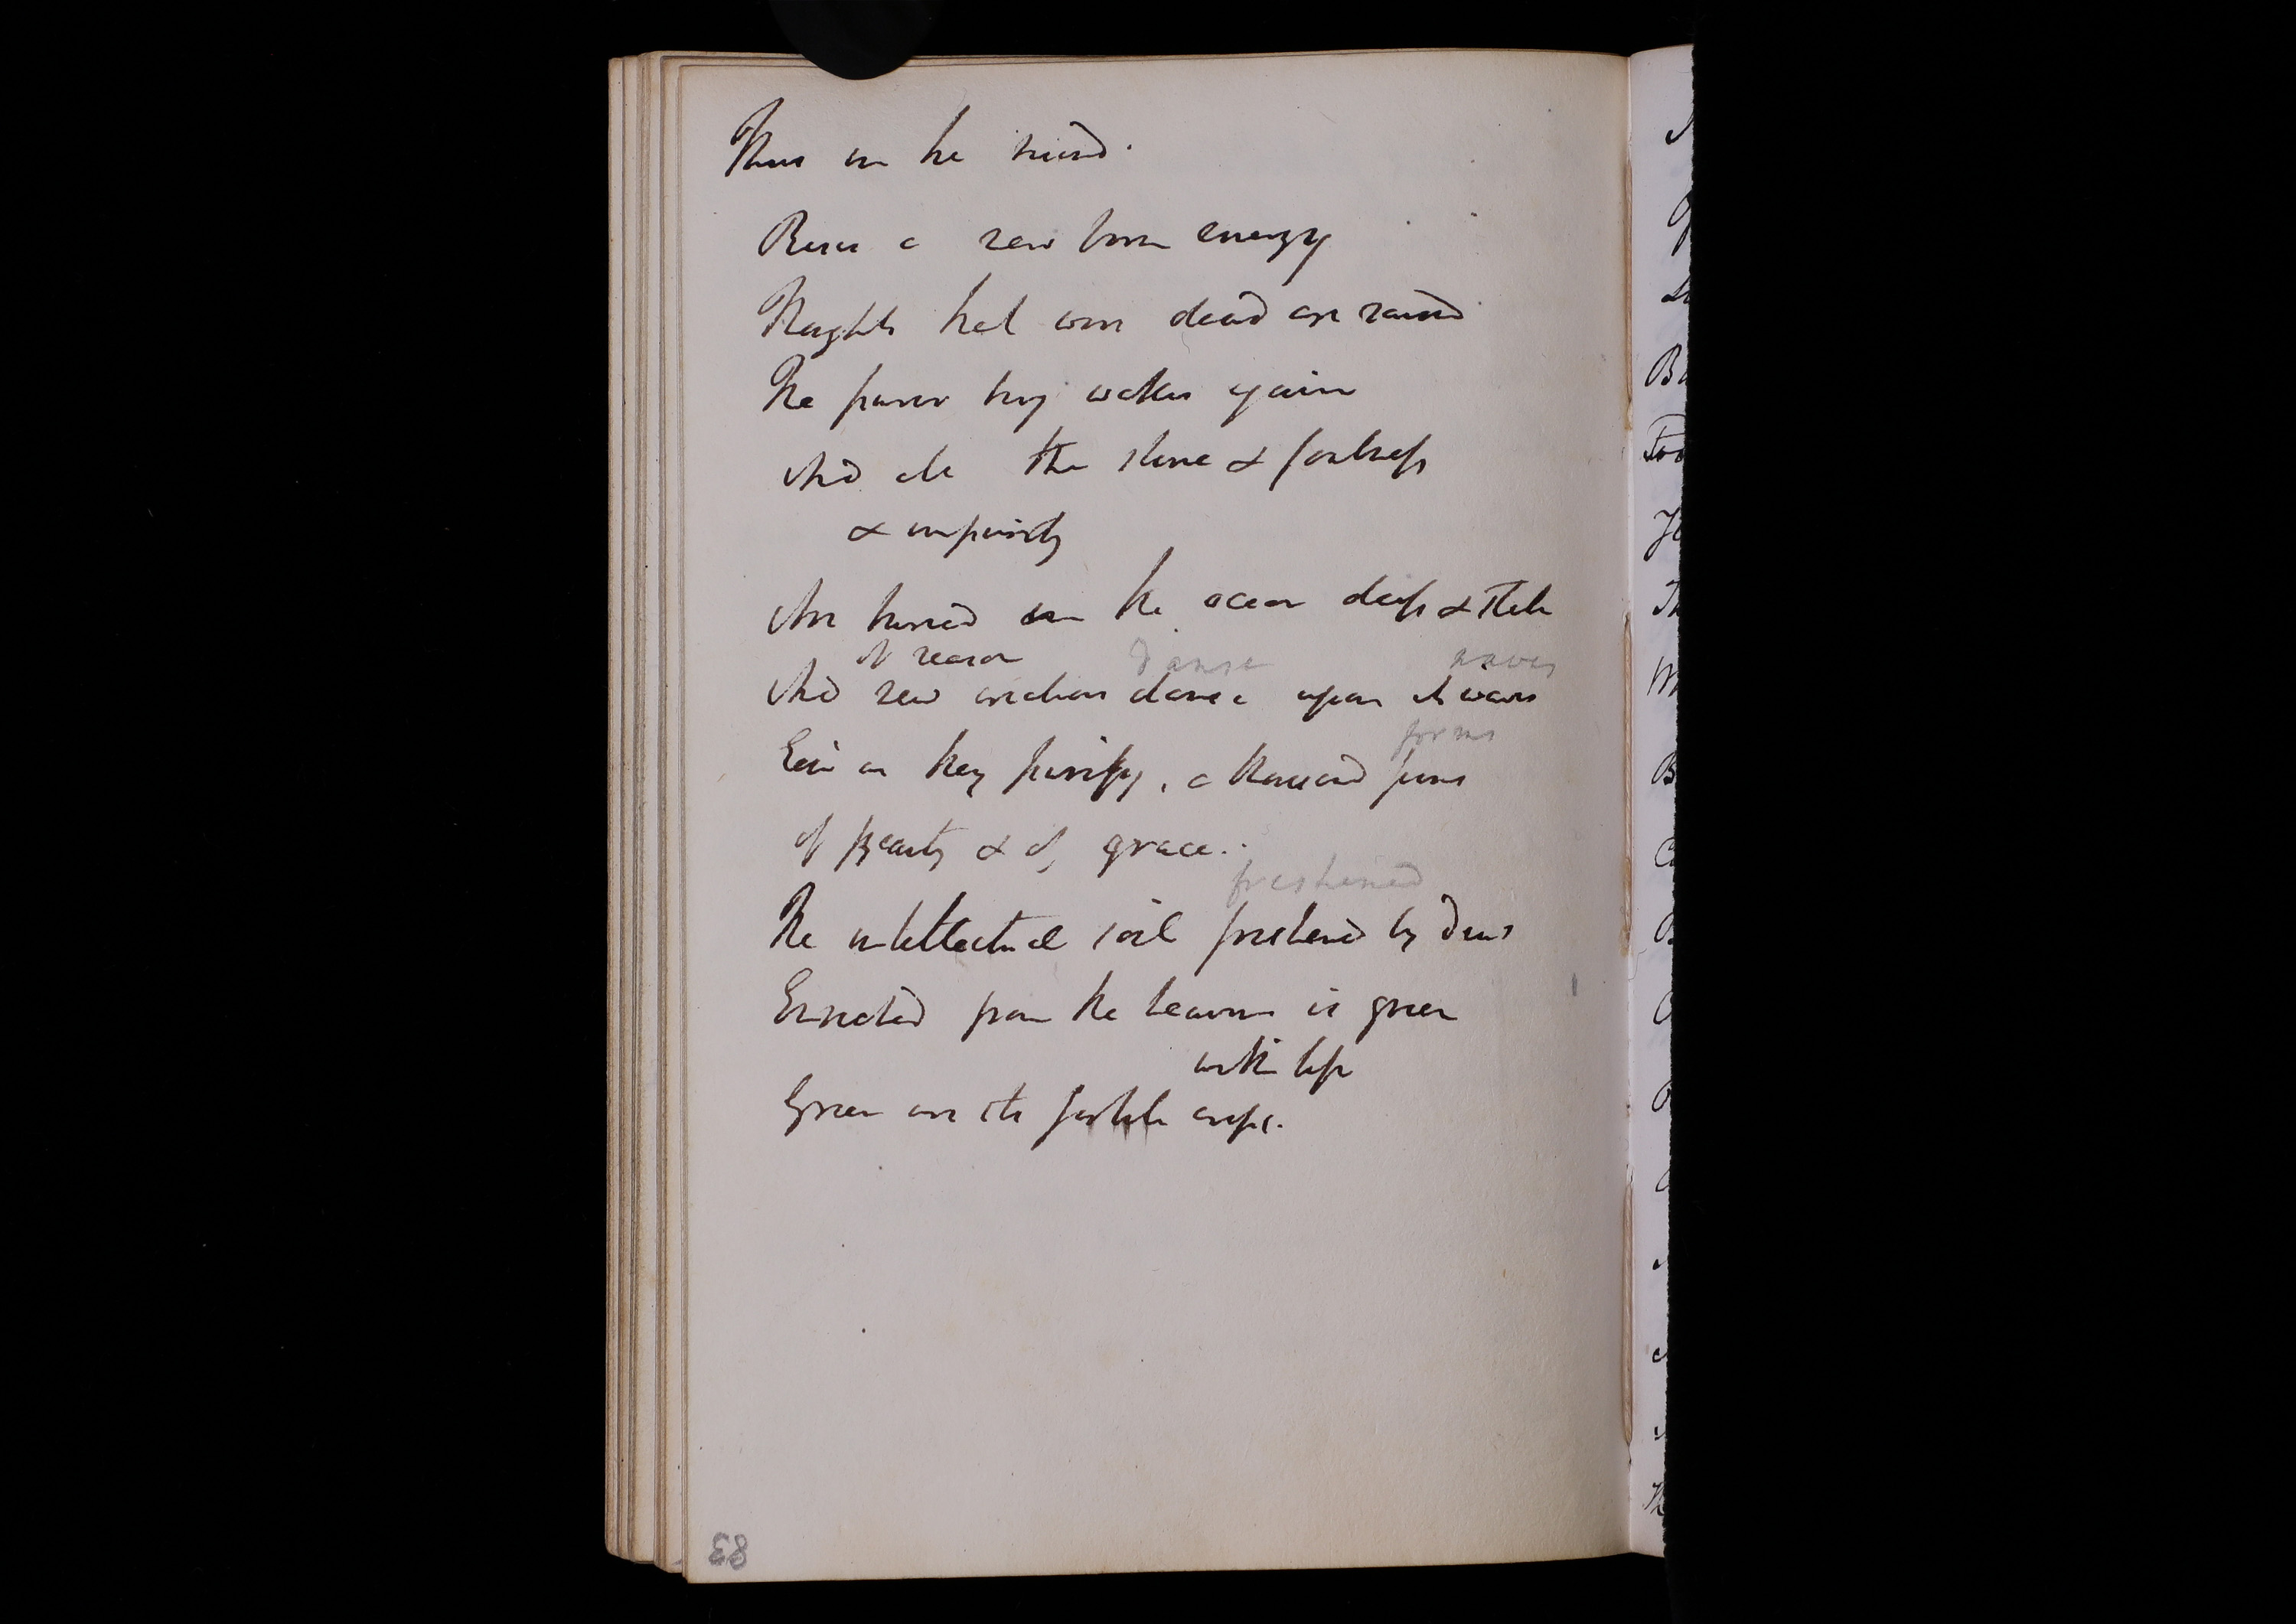 Thus in the mind
Rises a new born energy
Thoughts that were dead are raised
The power they waken again
And all the slime & foulness
& impurity
Are buried in the ocean deep & still
of reason danse waves
And new creations dance upon its waves
Ever as they purify, a thousand forms
forms
of Beauty & of grace..
freshened
The intellectual soil freshened by dews
Enriched from the heavens is green
with life
Green are its fertile crops.
83